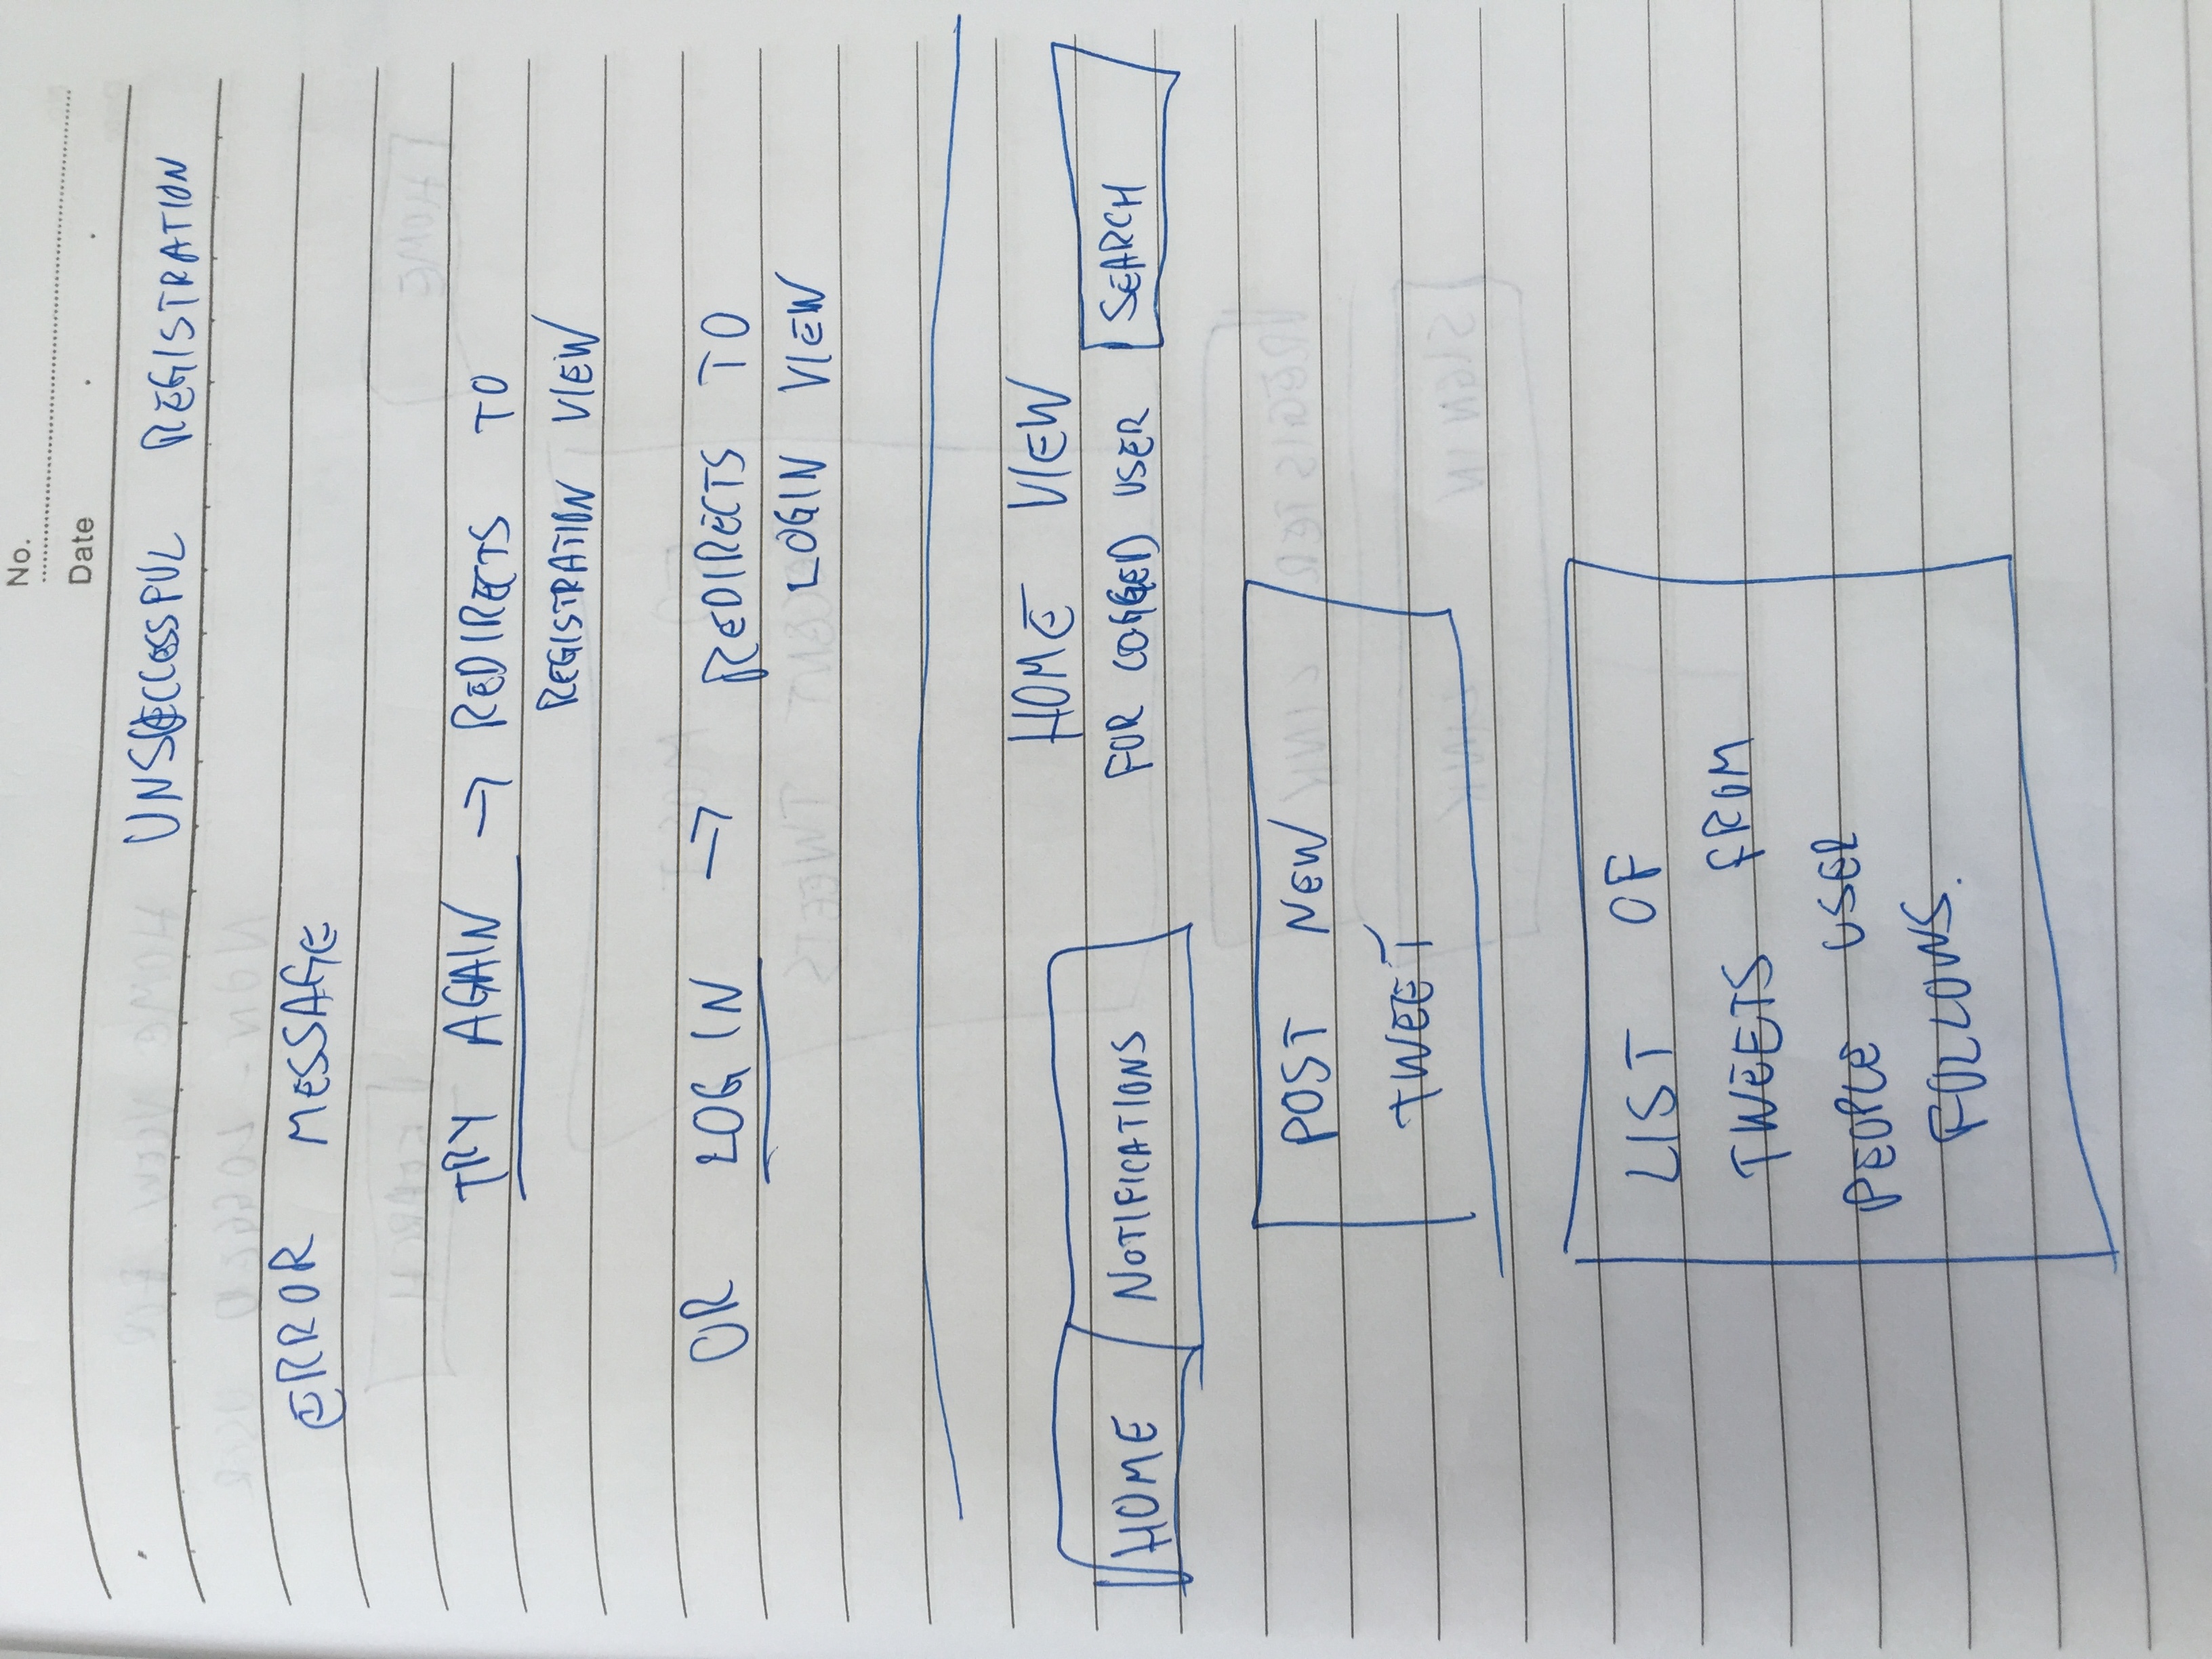 No.
Date
UNSUCCESSFUL REGISTRATION
ERROR MESSAGE
TRY AGAIN → REDIRECTS TO
REGISTRATION VIEW
OR LOG IN → REDIRECTS TO
LOGIN VIEW
HOME VIEW
HOME NOTIFICATIONS FOR LOGGED USER SEARCH
POST NEW
TWEET
LIST OF
TWEETS FROM
PEOPLE USER
FOLLOWS.